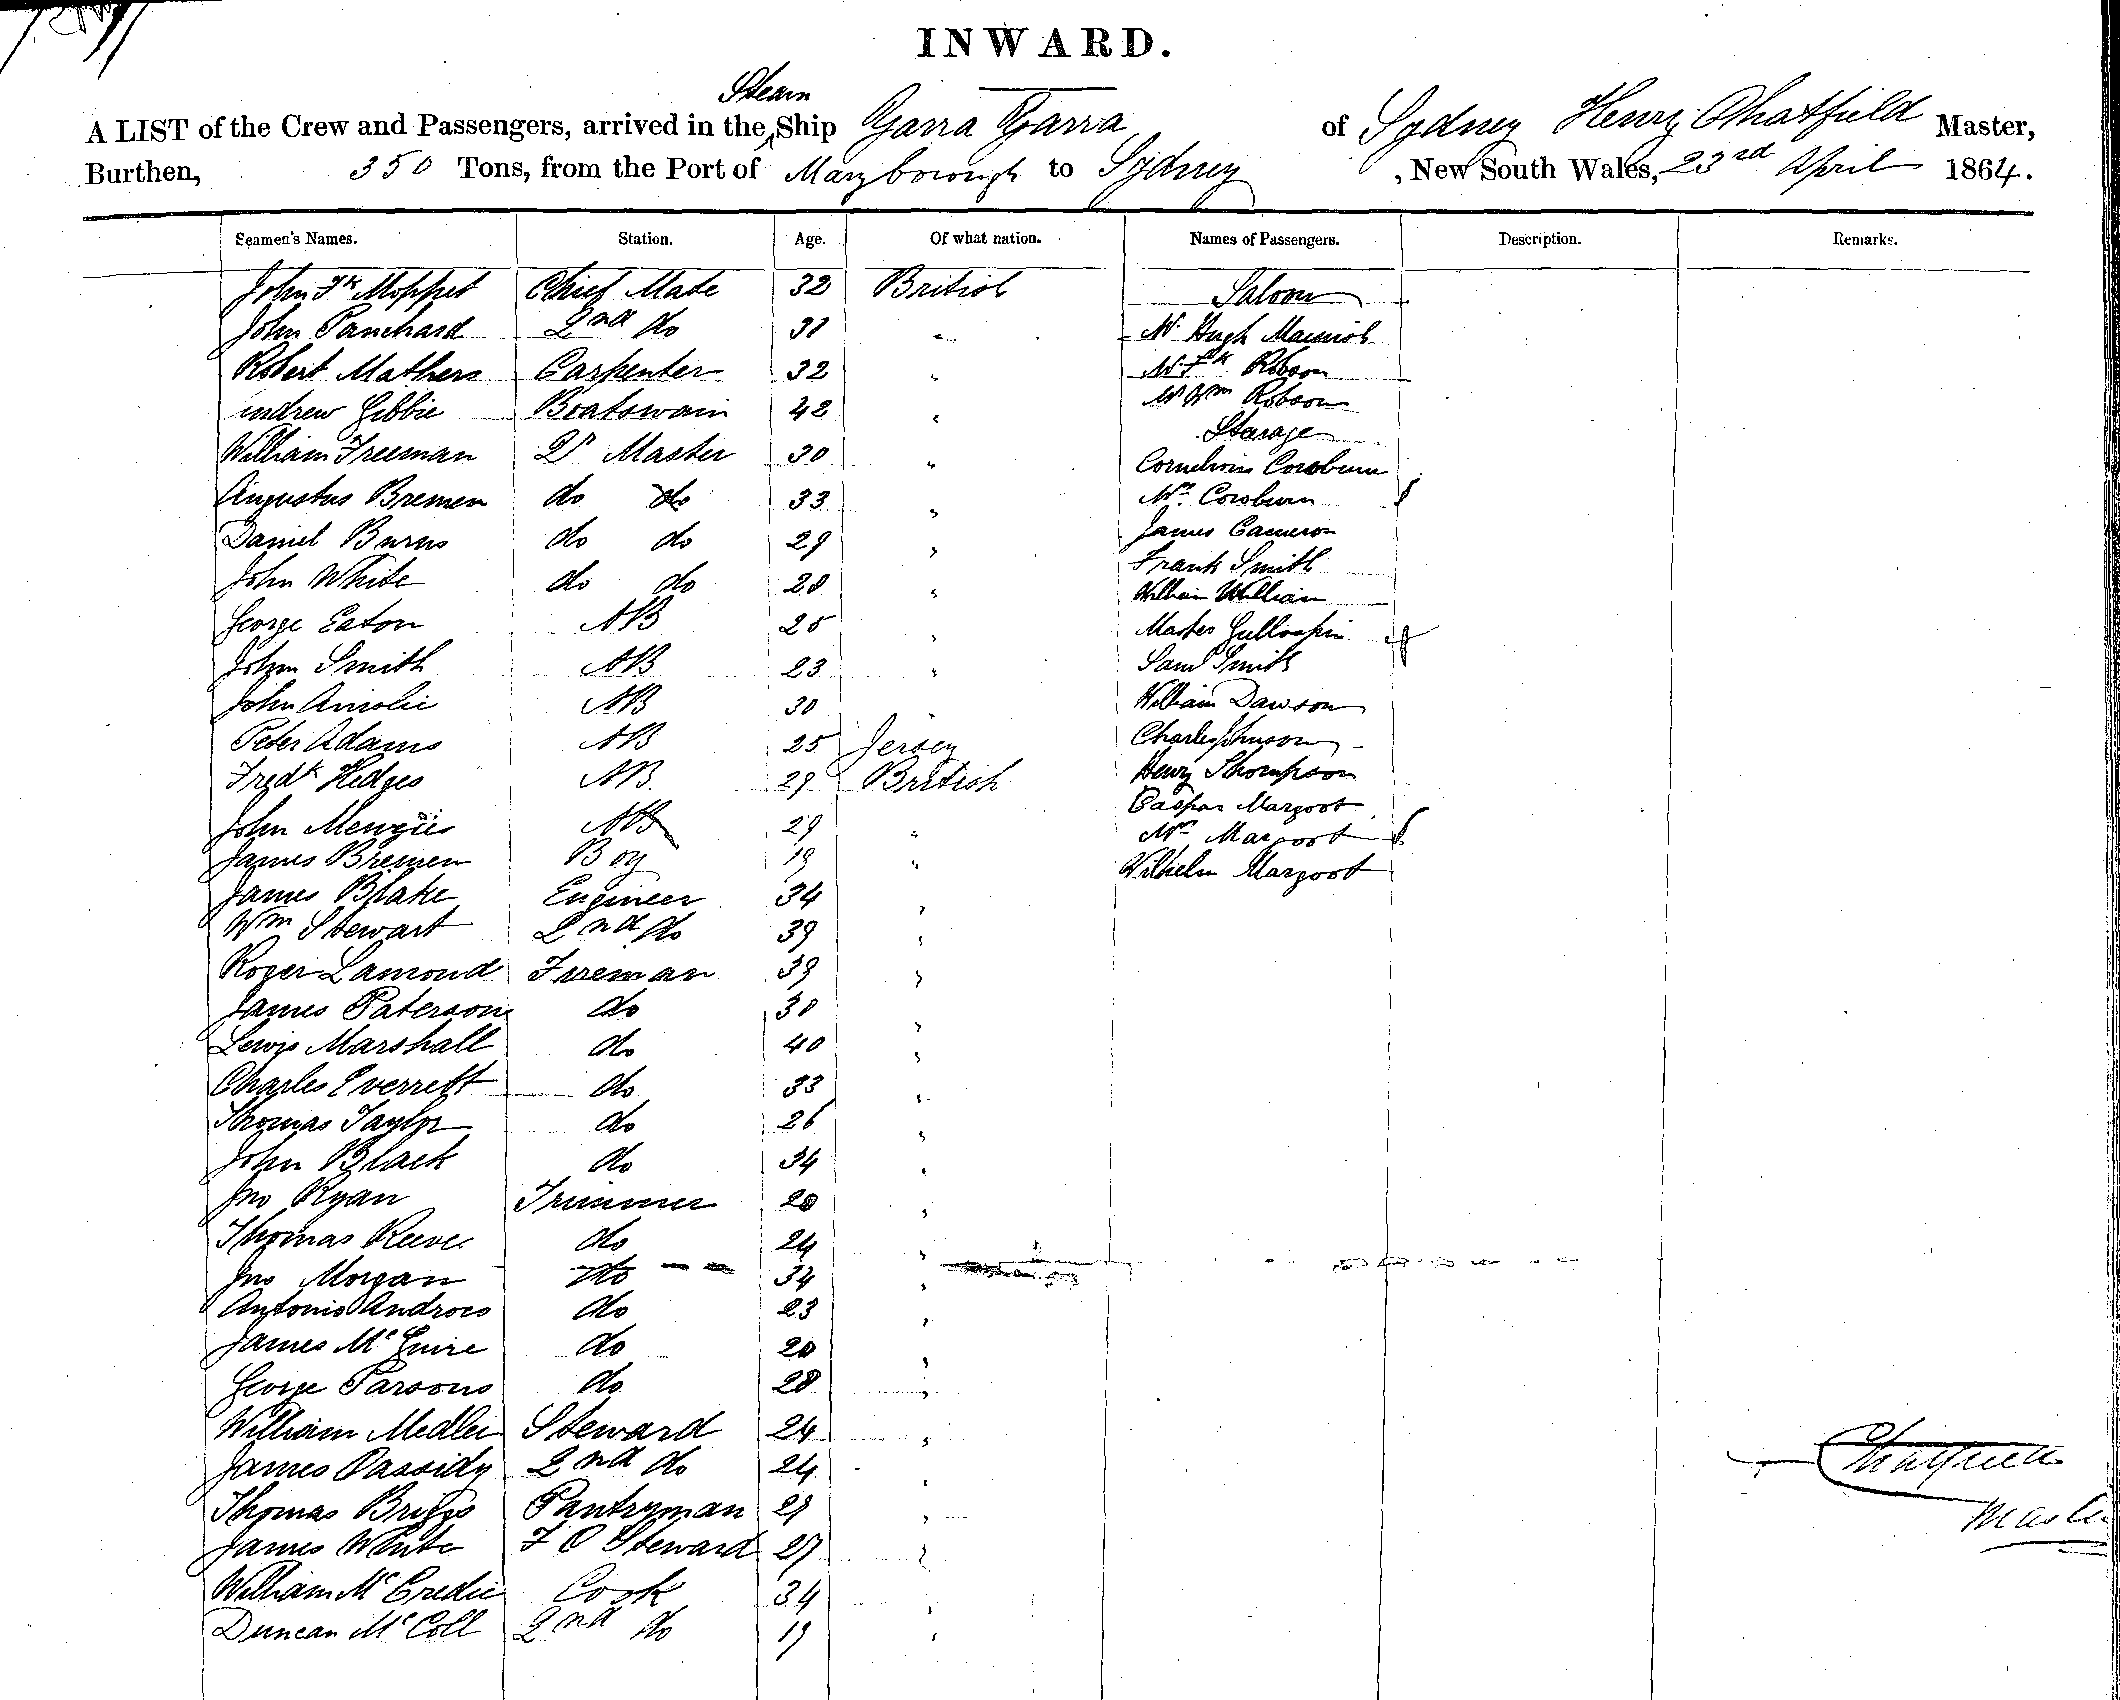 INWARD.
A LIST of the Crew and Passengers, arrived in the Steam Ship Yarra Yarra of Sydney Henry Chatfield Master,
Burthen, 350 Tons, from the Port of Maryborough to Sydney, New South Wales, 23rd April 1864.
Seamen's Names. Station. Age. Of what nation. Names of Passengers. Description. Remarks.
John Fk Moppet Chief Mate 32 British Saloon
John Panchard 2nd do 31 " Mr Hugh
Robert Mathers Carpenter 32 " Mr Fk Robson
Andrew Gibbie Boatswain 42 " Mr Wm Robson
Steerage
William Freeman Qr Master 30 " Cornelius
Augustus Bremen do do 33 "
Daniel Burns do do 29 " James Cameron
John White do do 28 " Frank Smith
George Eaton AB 25 " William William
Master
John Smith AB 23 " Saml Smith
John Ainslie AB 30 " William Dawson
Peter Adams AB 25 Jersey Charles Johnson
Fredk Hedges AB 29 British Henry Thompson
Caspar Margoot
John Menzies AB 29 " Mrs Margoot
James Bremen Boy 19 " Wilhelm Margoot
James Blake Engineer 34 "
Wm Stewart 2nd do 39 "
Roger Lamond Fireman 39 "
James Paterson do 30 "
Lewis Marshall do 40 "
Charles Everrett do 33 "
Thomas Taylor do 26 "
John Black do 34 "
Jno Ryan Trimmer 20 "
Thomas Reeve do 24 "
Jno Morgan do 34 "
Antonio Androes do 23 "
James McGuire do 20 "
George Parsons do 28 "
William Medlei Steward 24 "
James Cassidy 2nd do 24 "
Chatfield
Thomas Briggs Pantryman 29 "
Master
James White F C Steward 27 "
William McCredie Cook 34 "
Duncan McColl 2nd do 19 "